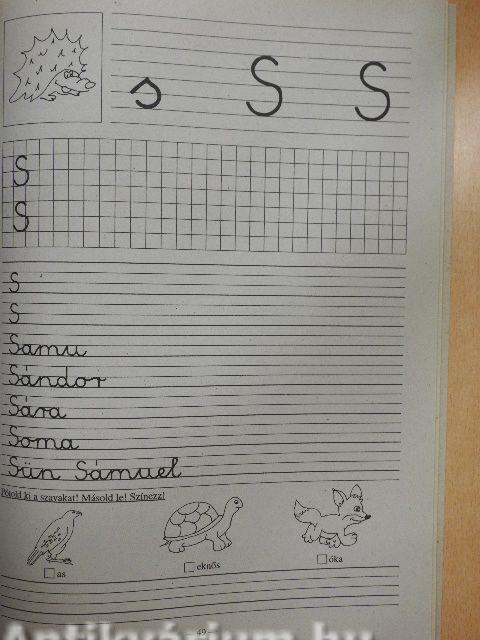 s S S
S
S
S
S
Samu
Sándor
Sára
Soma
Sün Sámuel
Pótold ki a szavakat! Másold le! Színezz!
as eknős óka
49
Antikvárium.hu